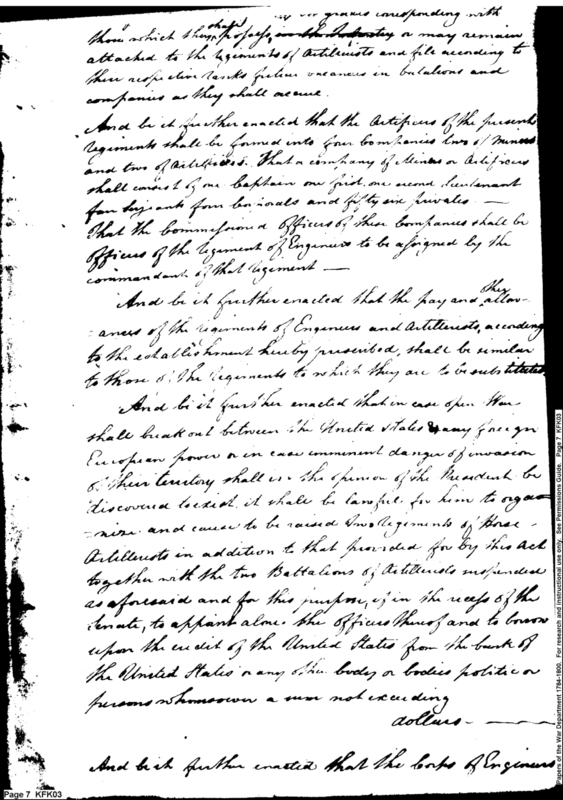 grades corresponding with
those which they shall possess or may remain
attached to the regiments of Artillerists and fill according to
their respective ranks future vacancies in batalions and
companies as they shall accrue.
And be it further enacted that the Artificers of the present
regiments shall be formed into four Companies two of Miners
and two of Artificers. That a company of Miners or Artificers
shall consist of one Captain one first, one second lieutenant
four serjeants four corporals and fifty six privates. —
That the Commissioned Officers of these Companies shall be
Officers of the regiment of Engineers to be assigned by the
commandant of that regiment —
And be it further enacted that the pay and other allow-
-ances of the regiments of Engineers and Artillerists, according
to the establishment hereby prescribed, shall be similar
to those of the regiments to which they are to be substituted
And be it further enacted that in case open War
shall break out between the United States & any foreign
European power or in case imminent danger of invasion
of their territory shall in the opinion of the President be
discovered to exist, it shall be lawful for him to orga-
-nize and cause to be raised two regiments of Horse
Artillerists in addition to that provided for by this Act
together with the two Battalions of Artillerists suspended
as aforesaid and for this purpose, if in the recess of the
Senate, to appoint alone the officers thereof and to borrow
upon the credit of the United States from the bank of
the United States or any other body or bodies politic or
persons whomsoever a sum not exceeding
dollars —
And be it further enacted that the Corps of Engineers
Page 7 KFK03
Papers of the War Department 1784-1800. For research and instructional use only. See Permissions Guide. Page 7 KFK03